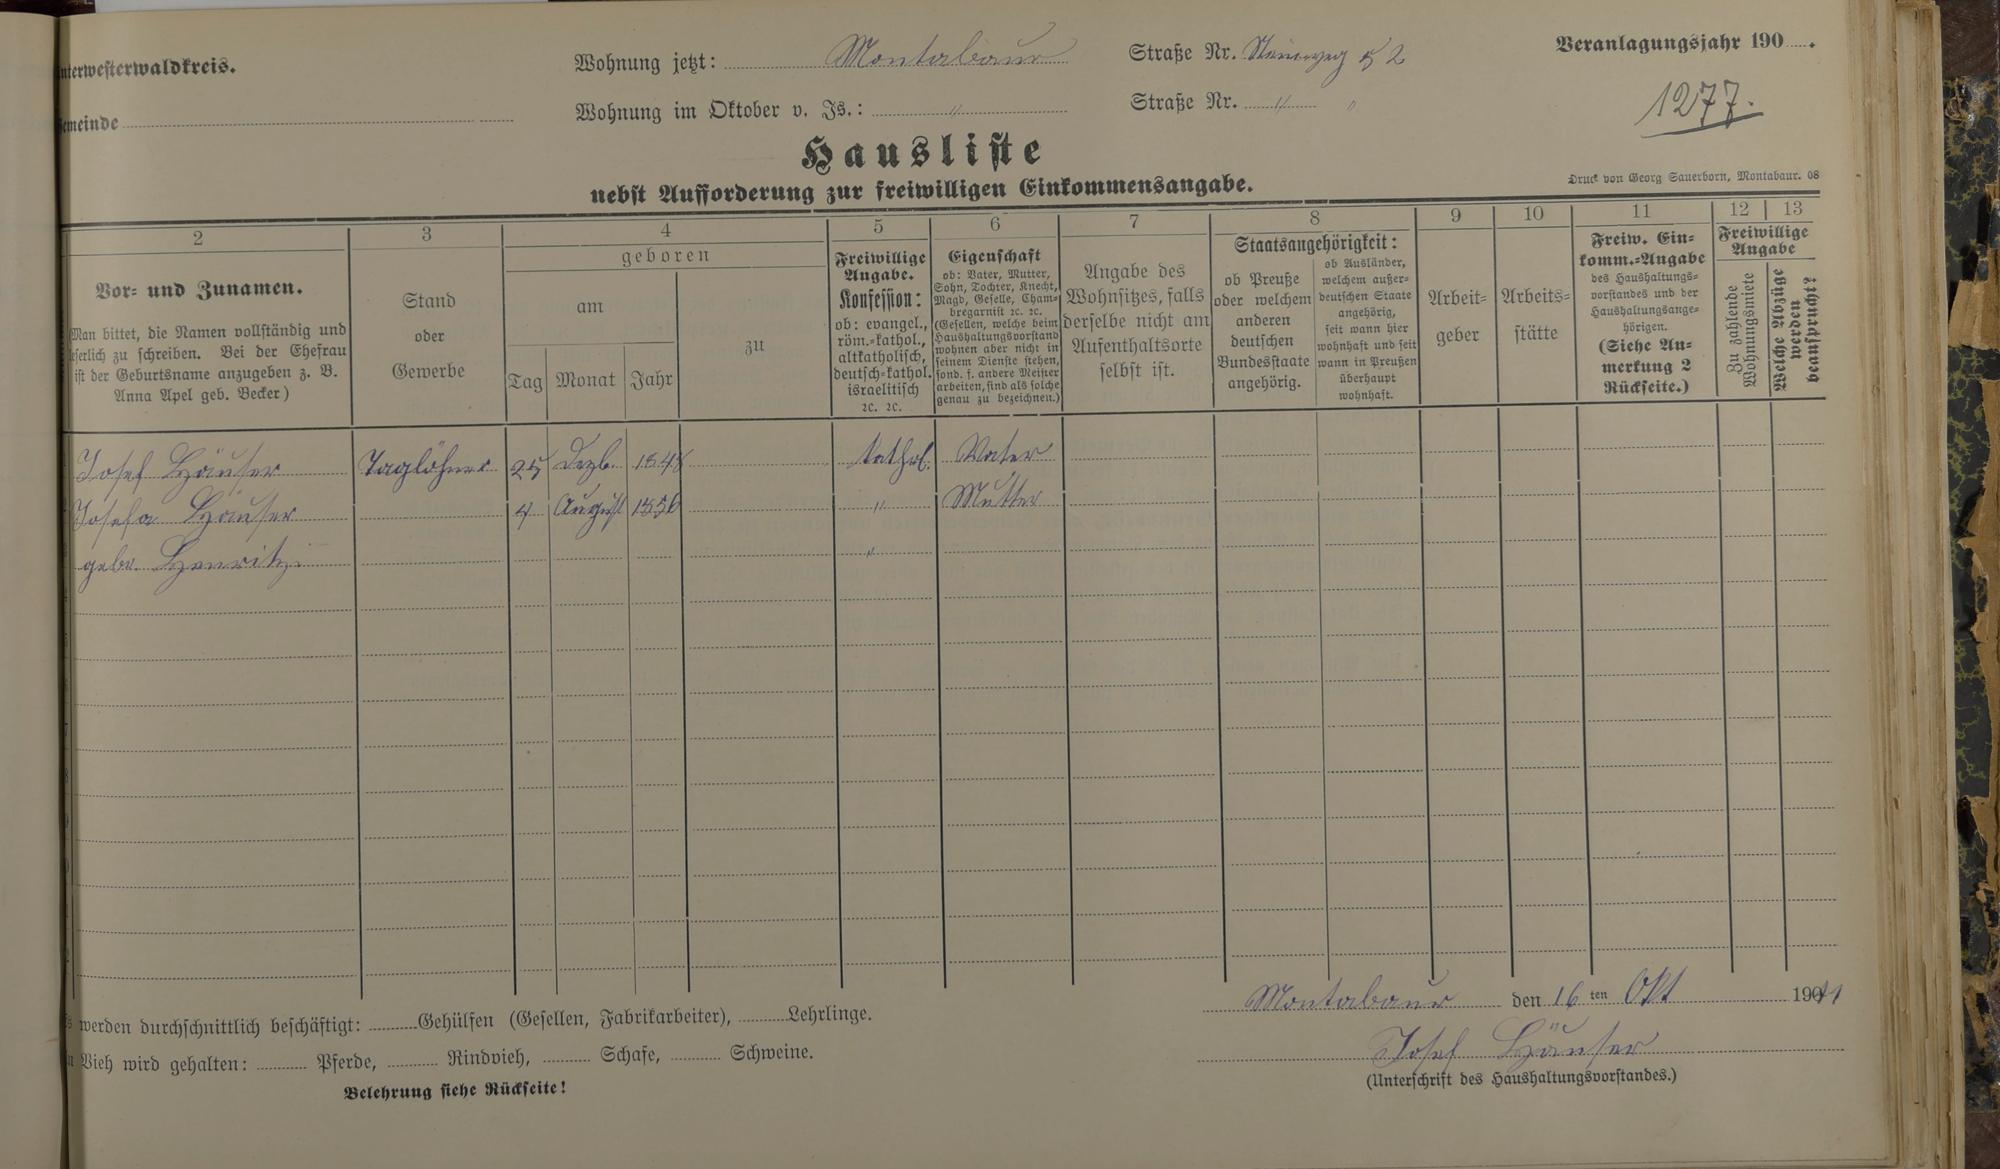 nterwesterwaldkreis.
emeinde
Wohnung jetzt: Montabaur Straße Nr. Steinweg 52
Wohnung im Oktober v. Js.: " Straße Nr. " "
Veranlagungsjahr 190 .
1277.
Hausliste
nebst Aufforderung zur freiwilligen Einkommensangabe.
Druck von Georg Sauerborn, Montabaur. 08
2 3 4 5 6 7 8 9 10 11 12 13
Vor- und Zunamen.
Man bittet, die Namen vollständig und
eserlich zu schreiben. Bei der Ehefrau
ist der Geburtsname anzugeben z. B.
Anna Apel geb. Becker)
Stand
oder
Gewerbe
geboren
am
Tag Monat Jahr
zu
Freiwillige
Angabe.
Konfession:
ob: evangel.,
röm.-kathol.,
altkatholisch,
deutsch-kathol.
israelitisch
ꝛc. ꝛc.
Eigenschaft
ob: Vater, Mutter,
Sohn, Tochter, Knecht,
Magd, Geselle, Cham-
bregarnist ꝛc. ꝛc.
(Gesellen, welche beim
Haushaltungsvorstand
wohnen aber nicht in
seinem Dienste stehen,
sond. f. andere Meister
arbeiten, sind als solche
genau zu bezeichnen.)
Angabe des
Wohnsitzes, falls
derselbe nicht am
Aufenthaltsorte
selbst ist.
Staatsangehörigkeit:
ob Preuße
oder welchem
anderen
deutschen
Bundesstaate
angehörig.
ob Ausländer,
welchem außer-
deutschen Staate
angehörig,
seit wann hier
wohnhaft und seit
wann in Preußen
überhaupt
wohnhaft.
Arbeit-
geber
Arbeits-
stätte
Freiw. Ein-
komm.-Angabe
des Haushaltungs-
vorstandes und der
Haushaltungsange-
hörigen.
(Siehe An-
merkung 2
Rückseite.)
Freiwillige
Angabe
Zu zahlende
Wohnungsmiete
Welche Abzüge
werden
beansprucht?
Josef Häuser Taglöhner 25 Dezb. 1848 Kathol. Vater
Josefa Häuser 4 August 1856 " Mutter
gebr. Henritzi "
werden durchschnittlich beschäftigt: Gehülfen (Gesellen, Fabrikarbeiter), Lehrlinge.
Vieh wird gehalten: Pferde, Rindvieh, Schafe, Schweine.
Belehrung siehe Rückseite!
Montabaur den 16 ten Okt 1911
Josef Häuser
(Unterschrift des Haushaltungsvorstandes.)